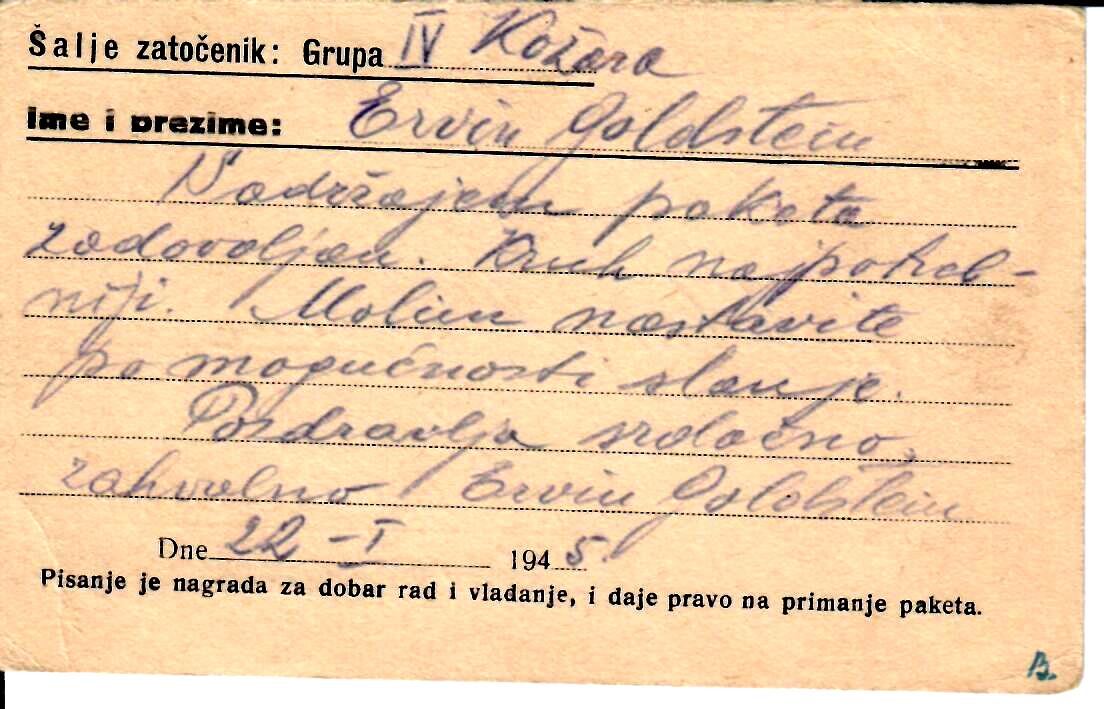 Šalje zatočenik: Grupa IV Kožara
Ime i prezime: Ervin Goldstein
Sadržajem paketa
zadovoljan. Kruh najpotreb-
niji. Molim nastavite
po mogućnosti slanje.
Pozdravlja srdačno,
zahvalno Ervin Goldstein
Dne 22 - I 1945.
Pisanje je nagrada za dobar rad i vladanje, i daje pravo na primanje paketa.
B.